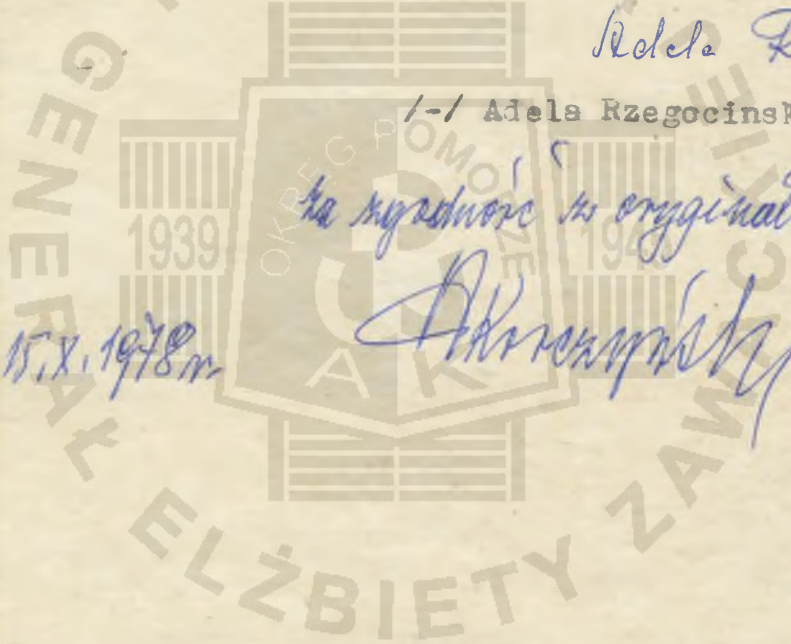 Adela R
/-/ Adela Rzegocinsk
za zgodność z oryginał
AKorczyński
15.X.1978 r.
GENERAŁ ELŻBIETY ZAWACKIEJ
OKRĘG POMORZE
1939
194
P
W
A
K